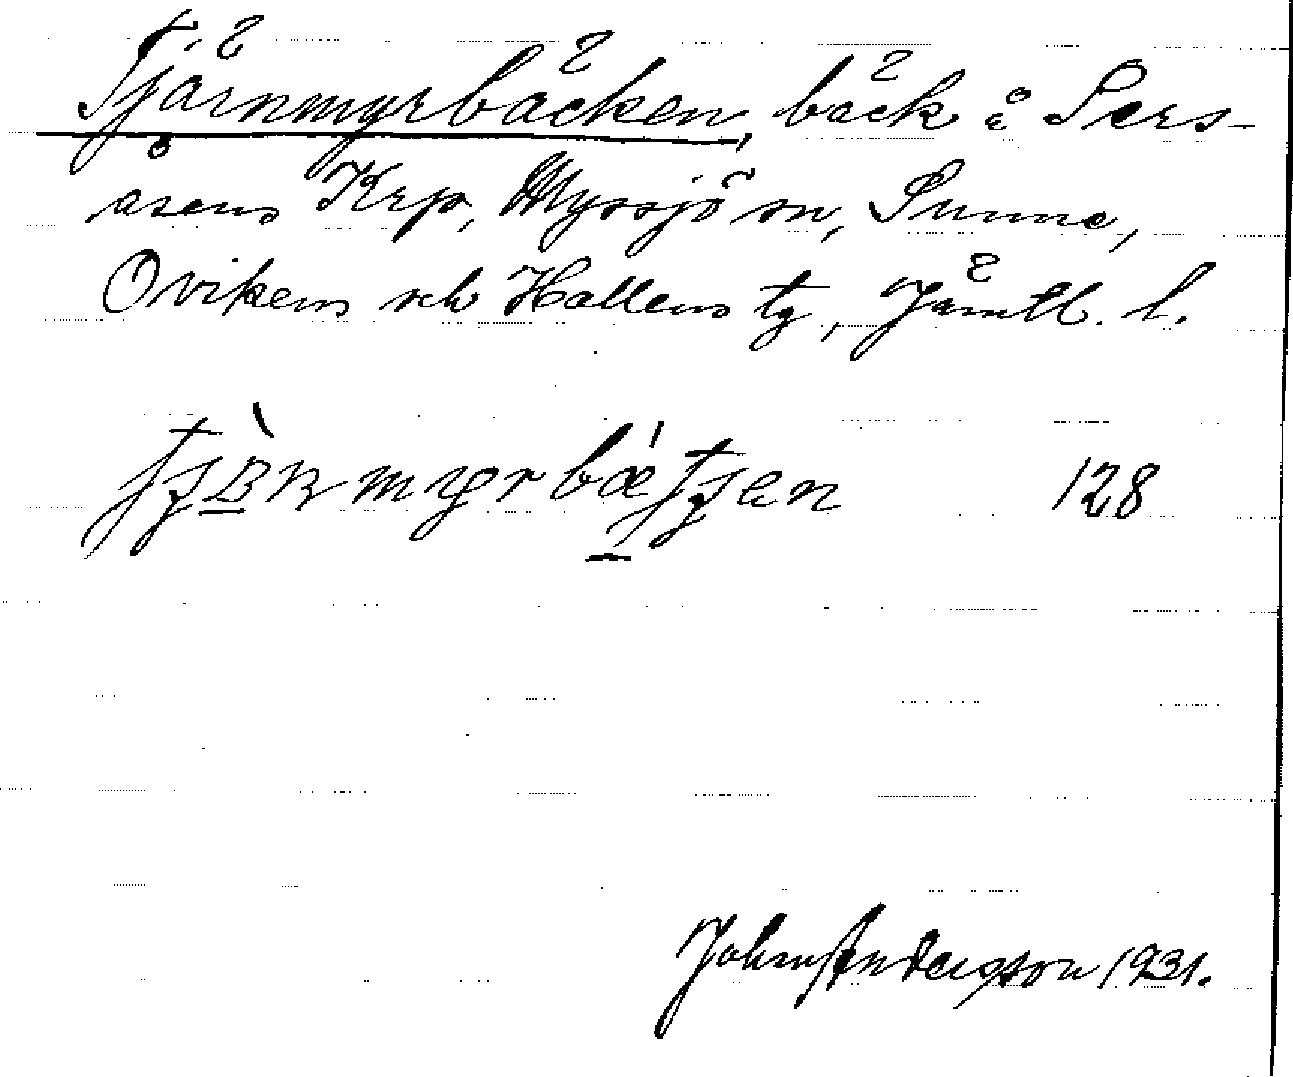 Tjärnmyrbäcken, bäck å Pers-
åsens Krp, Myssjö sn, Sunne,
Ovikens och Hallens tg, Jämtl. l.
128
John Andersson 1931.